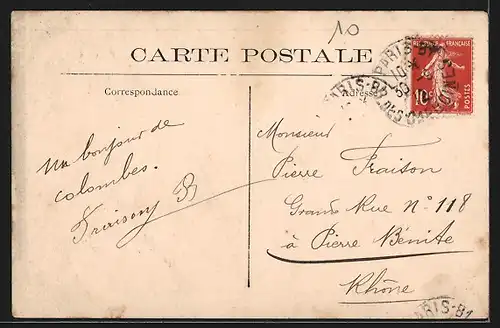 10
CARTE POSTALE
Correspondance
Adresse
RÉPUBLIQUE FRANÇAISE
10c
PARIS-81
PARIS-81
Un bonjour de
colombes.
Fraison B
Monsieur
Pierre Fraison
Grande Rue N° 118
à Pierre Bénite
Rhône
PARIS-81